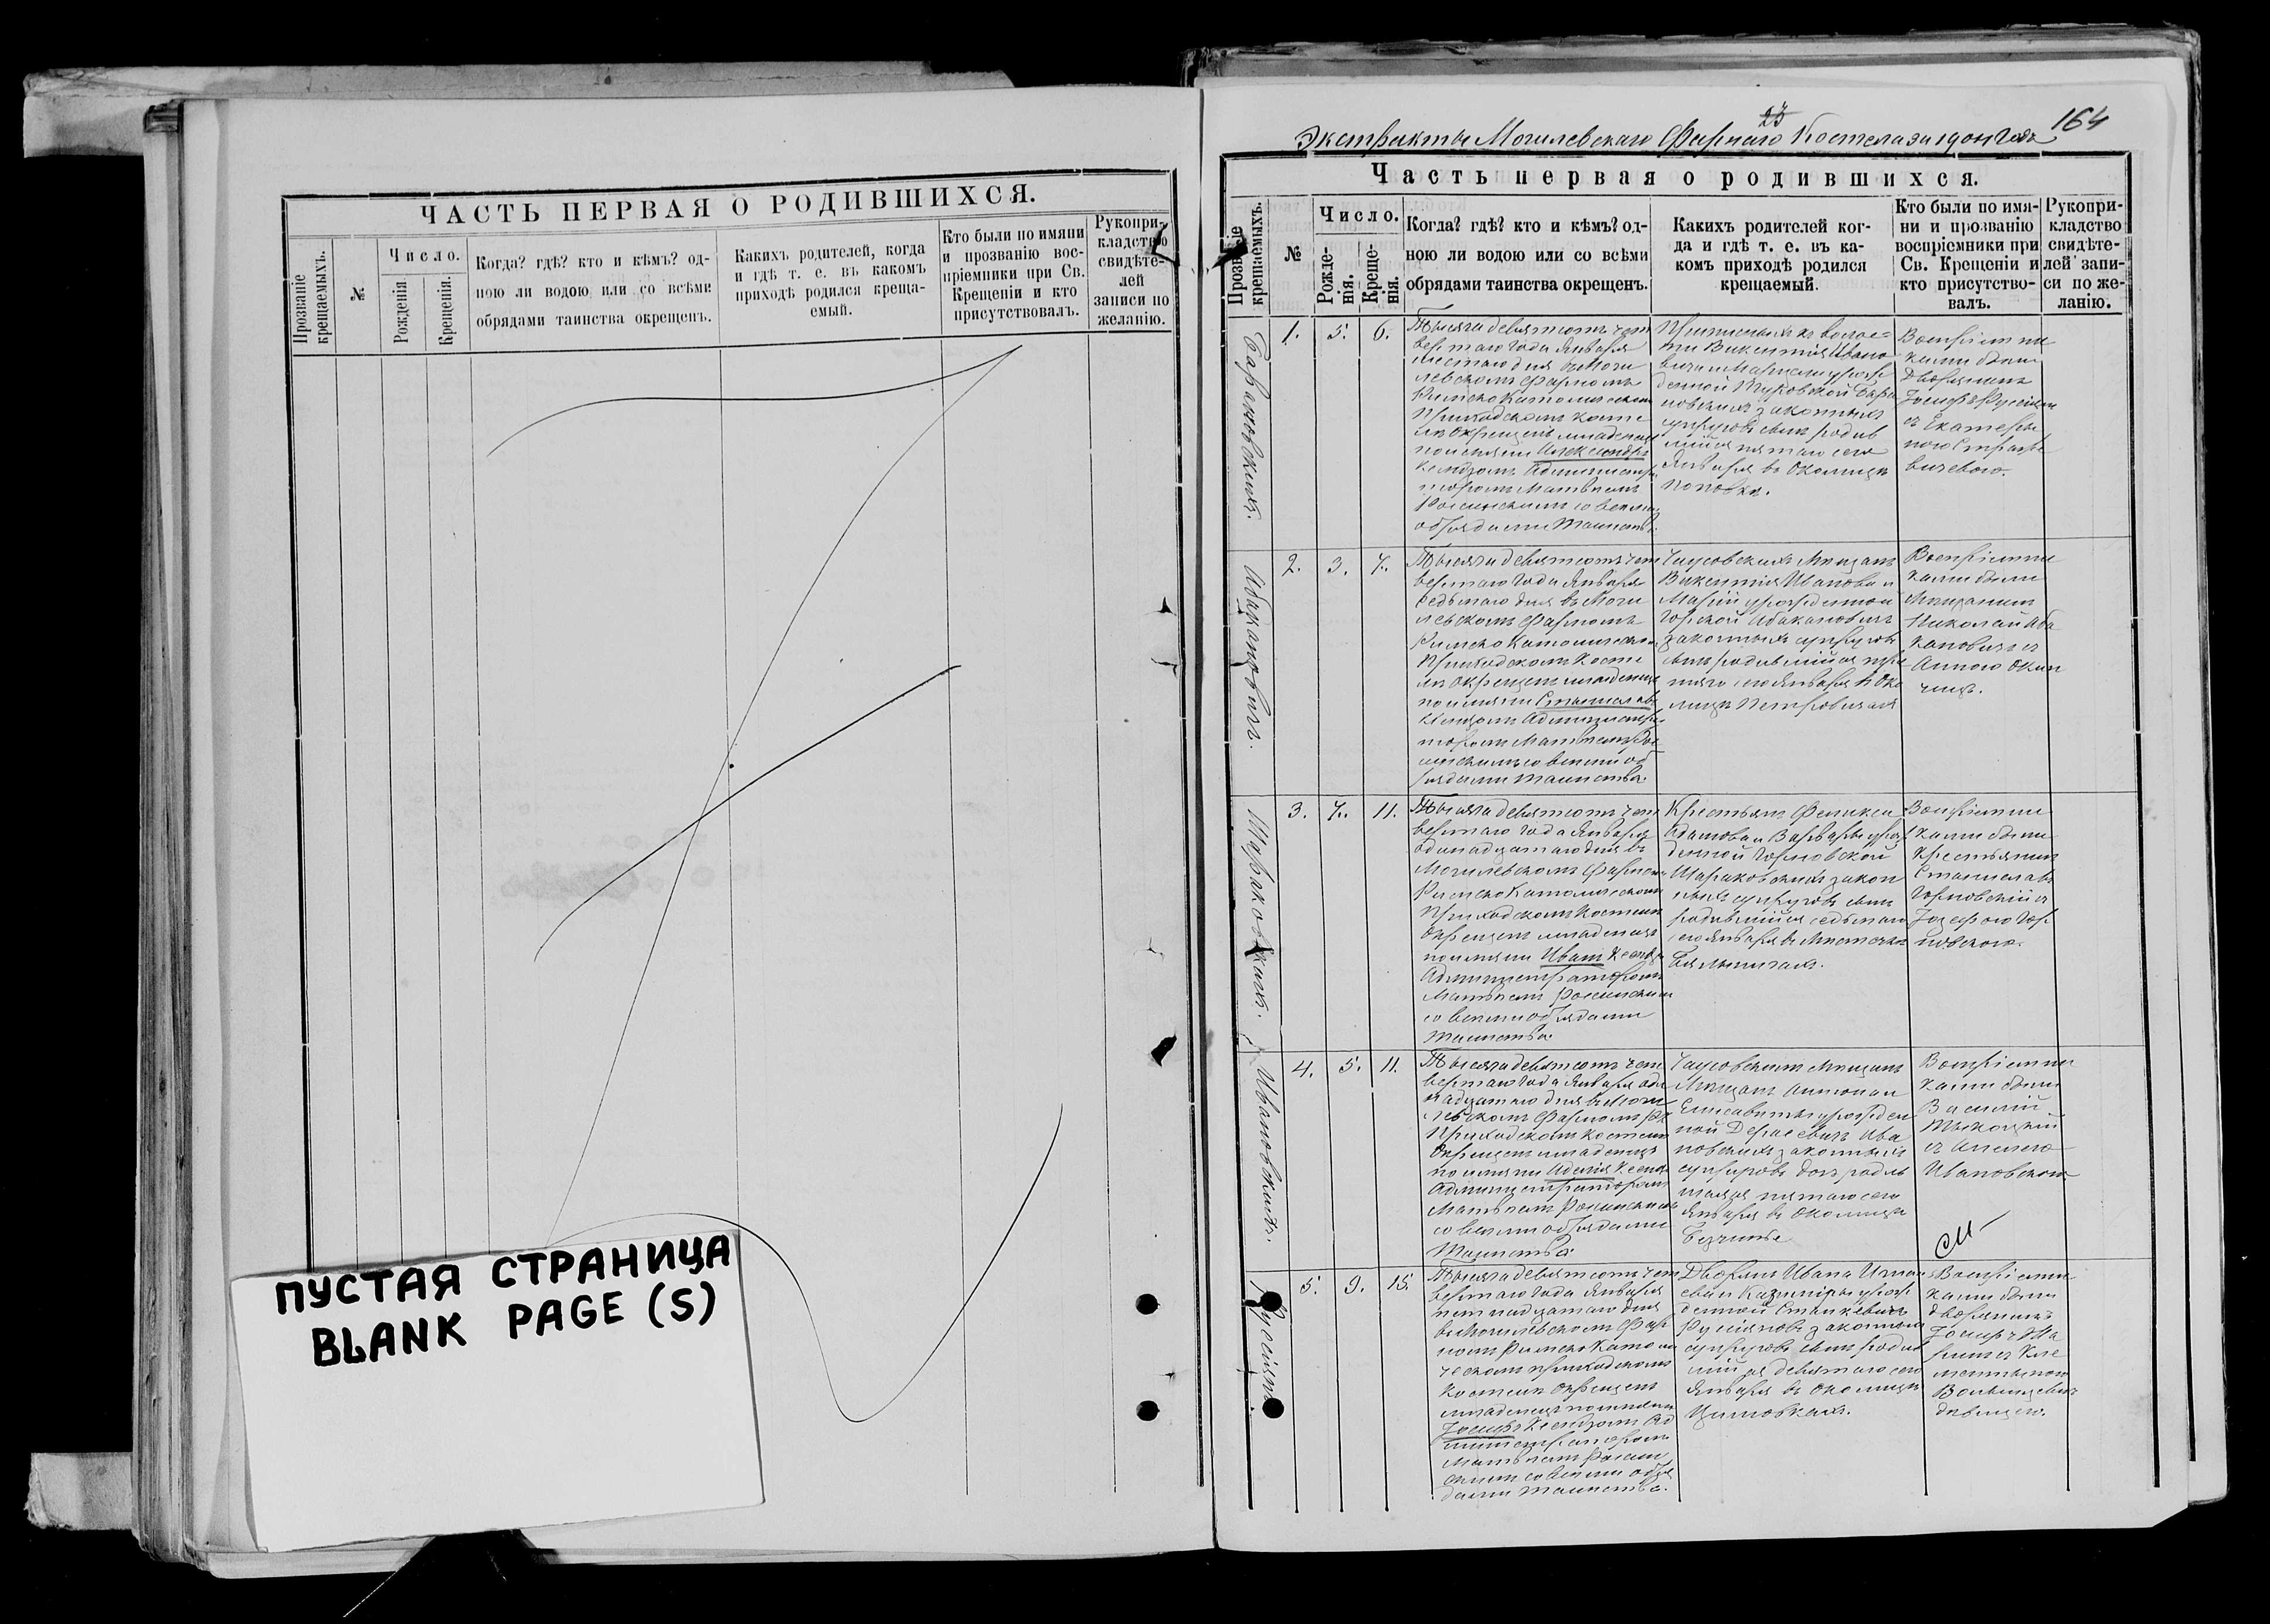 ЧАСТЬ ПЕРВАЯ О РОДИВШИХСЯ.
Прозваніе крещаемыхъ.
№
Число.
Рожденія.
Крещенія.
Когда? гдѣ? кто и кѣмъ? од-
ною ли водою или со всѣми
обрядами таинства окрещенъ.
Какихъ родителей, когда
и гдѣ т. е. въ какомъ
приходѣ родился креща-
емый.
Кто были по имяни
и прозванію вос-
пріемники при Св.
Крещеніи и кто
присутствовалъ.
Рукопри-
кладство
свидѣте-
лей
записи по
желанію.
ПУСТАЯ СТРАНИЦА
BLANK PAGE (S)
23
164
Экстракты Могилевскаго Фарнаго Костела за 1904 годъ
Часть первая о родившихся.
Прозваніе
крещаемыхъ.
№
Число.
Рожде-
нія.
Креще-
нія.
Когда? гдѣ? кто и кѣмъ? од-
ною ли водою или со всѣми
обрядами таинства окрещенъ.
Какихъ родителей ког-
да и гдѣ т. е. въ ка-
комъ приходѣ родился
крещаемый.
Кто были по имя-
ни и прозванію
воспріемники при
Св. Крещеніи и
кто присутство-
валъ.
Рукопри-
кладство
свидѣте-
лей запи-
си по же-
ланію.
Барановскихъ.
1. 5. 6.
Тысяча девятьсотъ чет
вертаго года Января
шестаго дня въ Моги
левскомъ Фарномъ
Римско Католическомъ
Приходскомъ косте
лѣ окрещенъ младенецъ
по имяни Александръ
Ксендзомъ Администра
торомъ Матвѣемъ
со всѣми
обрядами Таинства.
Викентія Ивано
рож
денной Бара
новскихъ законныхъ
супруговъ сынъ родив
шійся пятаго сего
Января въ Околицѣ
Поповкѣ.
Воспріемни
ками были
Дворянинъ
Іосифъ Русіянъ
съ Екатери
ною
Абакановичъ.
2. 3. 7.
Тысяча девятьсотъ чет
вертаго года Января
седьмаго дня въ Моги
левскомъ Фарномъ
Римско Католическомъ
Приходскомъ Косте
лѣ окрещенъ младенецъ
по имяни Станиславъ
Ксендзомъ Администра
торомъ Матвѣемъ
со всѣми об
рядами Таинства.
Чаусовскихъ Мѣщанъ
Викентія Иванова и
Маріи урожденной
Горской Абакановичъ
законныхъ супруговъ
сынъ родившійся тре
тяго сего Января въ Око
лицѣ Петровичахъ
Воспріемни
ками были
Мѣщанинъ
Николай Аба
кановичъ съ
Анною
Шараковскихъ.
3. 7. 11.
Тысяча девятьсотъ чет
вертаго года Января
одинадцатаго дня въ
Могилевскомъ Фарномъ
Римско Католическомъ
Приходскомъ Костелѣ
окрещенъ младенецъ
по имяни Иванъ Ксендз
Администраторомъ
Матвѣемъ
со всѣми обрядами
Таинства.
Крестьянъ Феликса
Адамова и Варвары урож
денной Горновской
Шараковскихъ закон
ныхъ супруговъ сынъ
родившійся седьмаго
сего Января въ Мѣстечкѣ
Бялыничахъ.
Воспріемни
ками были
Крестьянинъ
Станиславъ
Горновскій съ
Іозефою Гор
новскою.
Ивановскихъ.
4. 5. 11.
Тысяча девятьсотъ чет
вертаго года Января оди
надцатаго дня въ Моги
левскомъ Фарномъ Р. К.
Приходскомъ Костелѣ
окрещенъ младенецъ
по имяни Аделія Ксендз
Администраторомъ
Матвѣемъ
со всѣми обрядами
Таинства.
Чаусовскихъ Мѣщанъ
Мѣщанъ Антона и
Елисаветы урожден
ной Ива
новскихъ законныхъ
супруговъ дочь родив
шаяся пятаго сего
Января въ околицѣ
Воспріемни
ками были
Василій
съ
Ивановскою
Русіянъ
5. 9. 15.
Тысяча девятьсотъ чет
вертаго года Января
пятнадцатаго дня
въ Могилевскомъ Фар
номъ Римско Католи
ческомъ приходскомъ
Костелѣ окрещенъ
младенецъ по имяни
Іосифъ Ксендзомъ Ад
министраторомъ
Матвѣемъ
со всѣми обря
дами таинства.
Дворянъ Ивана Игнат
ева и Казиміры урож
денной Сташкевичъ
Русіяновъ законныхъ
супруговъ сынъ родив
шійся девятаго сего
Января въ околицѣ
Воспріемни
ками были
дворянинъ
Іосифъ
съ Кле
ментиною
дѣвицею.